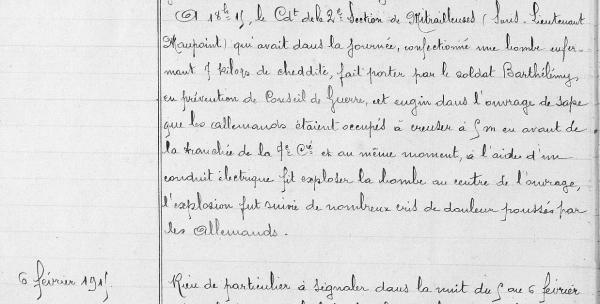 A 18h15, le Cdt de la 2e Section de Mitrailleuses (Sous-Lieutenant
Maupoint) qui avait dans la journée, confectionné une bombe enfer-
mant 7 kilogs de cheddite, fait porter par le soldat Barthélémy,
en prévention de Conseil de Guerre, cet engin dans l'ouvrage de sape
que les allemands étaient occupés à creuser à 5 m en avant de
la tranchée de la 7e Cie et au même moment, à l'aide d'un
conduit électrique fit exploser la bombe au centre de l'ouvrage,
l'explosion fut suivie de nombreux cris de douleur poussés par
les Allemands.
6 février 1915.
Rien de particulier à signaler dans la nuit du 5 au 6 février